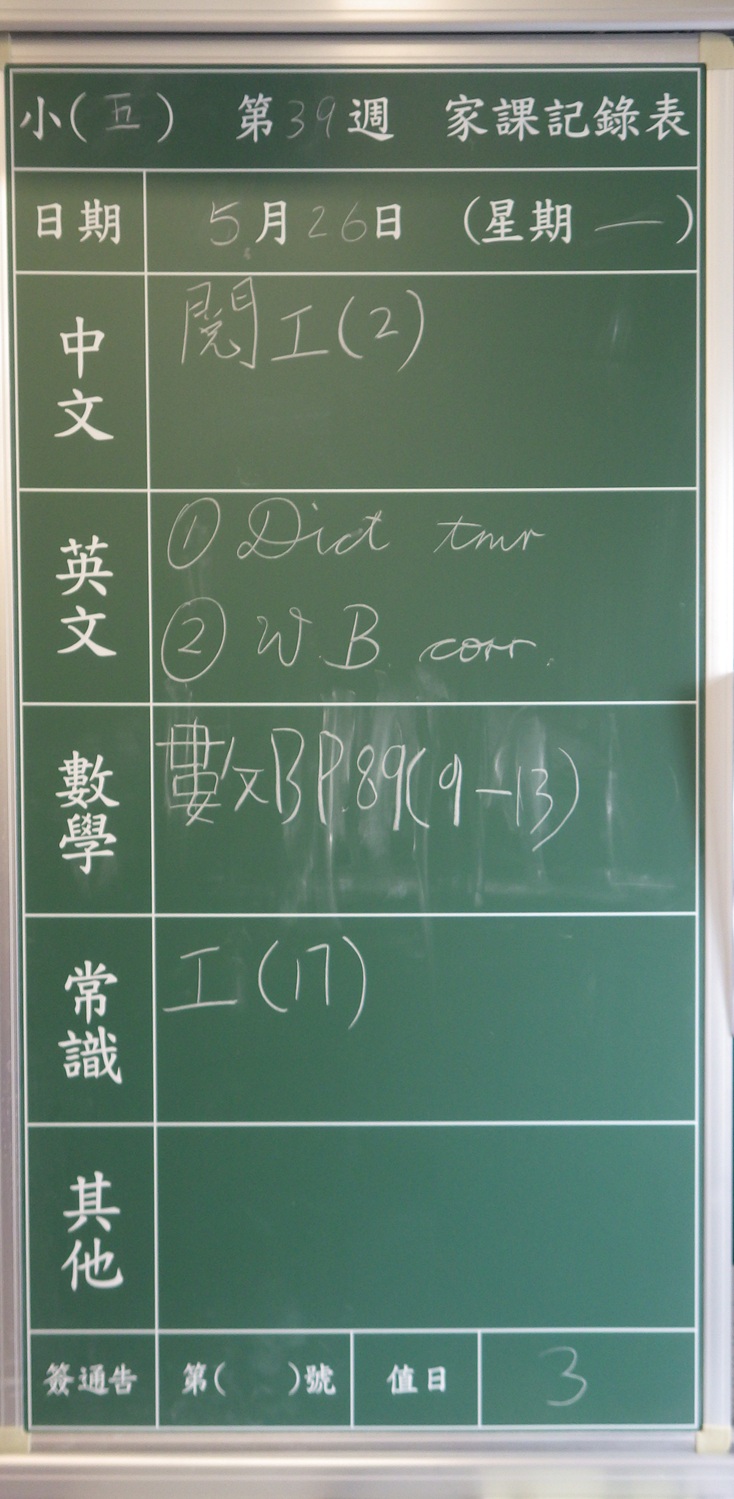 小(五) 第39週 家課記錄表
日期 5月26日 (星期一)
中文 閱工(2)
英文 ① Dict tmr
② W.B. corr.
數學 數B P.89(9-13)
常識 工(17)
其他
簽通告 第( )號 值日 3